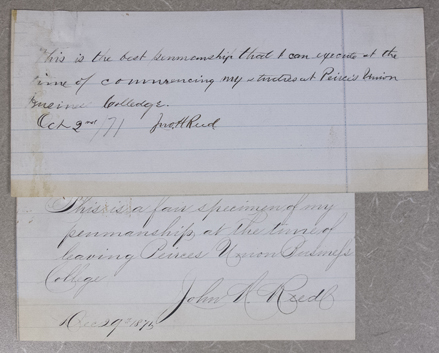 This is the best penmanship that I can execute at the
time of commencing my studies at Peirce's Union
Business Colledge.
Oct 2nd /71 Jno. H Reid
This is a fair specimen of my
penmanship, at the time of
leaving Peirces Union Business
College
John H Reid
Dec 29th 1875